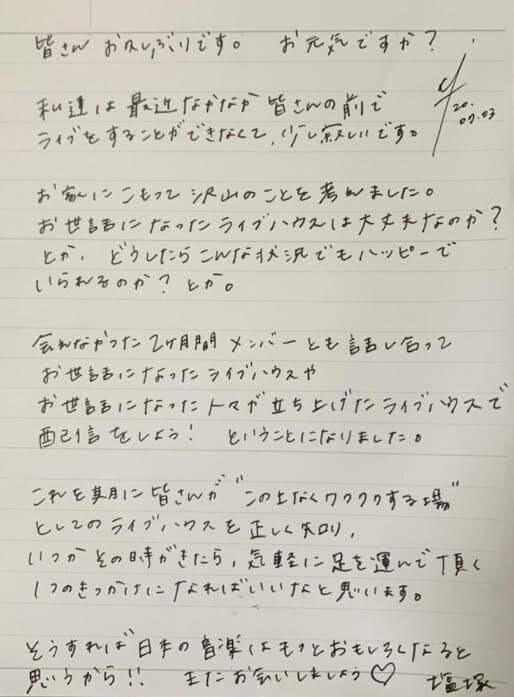 皆さん お久しぶりです。 お元気ですか?
20.
07.03
私達は最近なかなか皆さんの前で
ライブをすることができなくて、少し寂しいです。
お家にこもって沢山のことを考えました。
お世話になったライブハウスは大丈夫なのか?
とか、どうしたらこんな状況でもハッピーで
いられるのか? とか。
会えなかった2ヶ月間メンバーとも話し合って
お世話になったライブハウスや
お世話になった人々が立ち上げたライブハウスで
配信をしよう! ということになりました。
これを期に皆さんが"この上なくワクワクする場"
としてのライブハウスを正しく知り、
いつかその時がきたら、気軽に足を運んで頂く
1つのきっかけになればいいなと思います。
そうすれば日本の音楽はもっとおもしろくなると
思うから!! またお会いしましょう♡ 塩塚